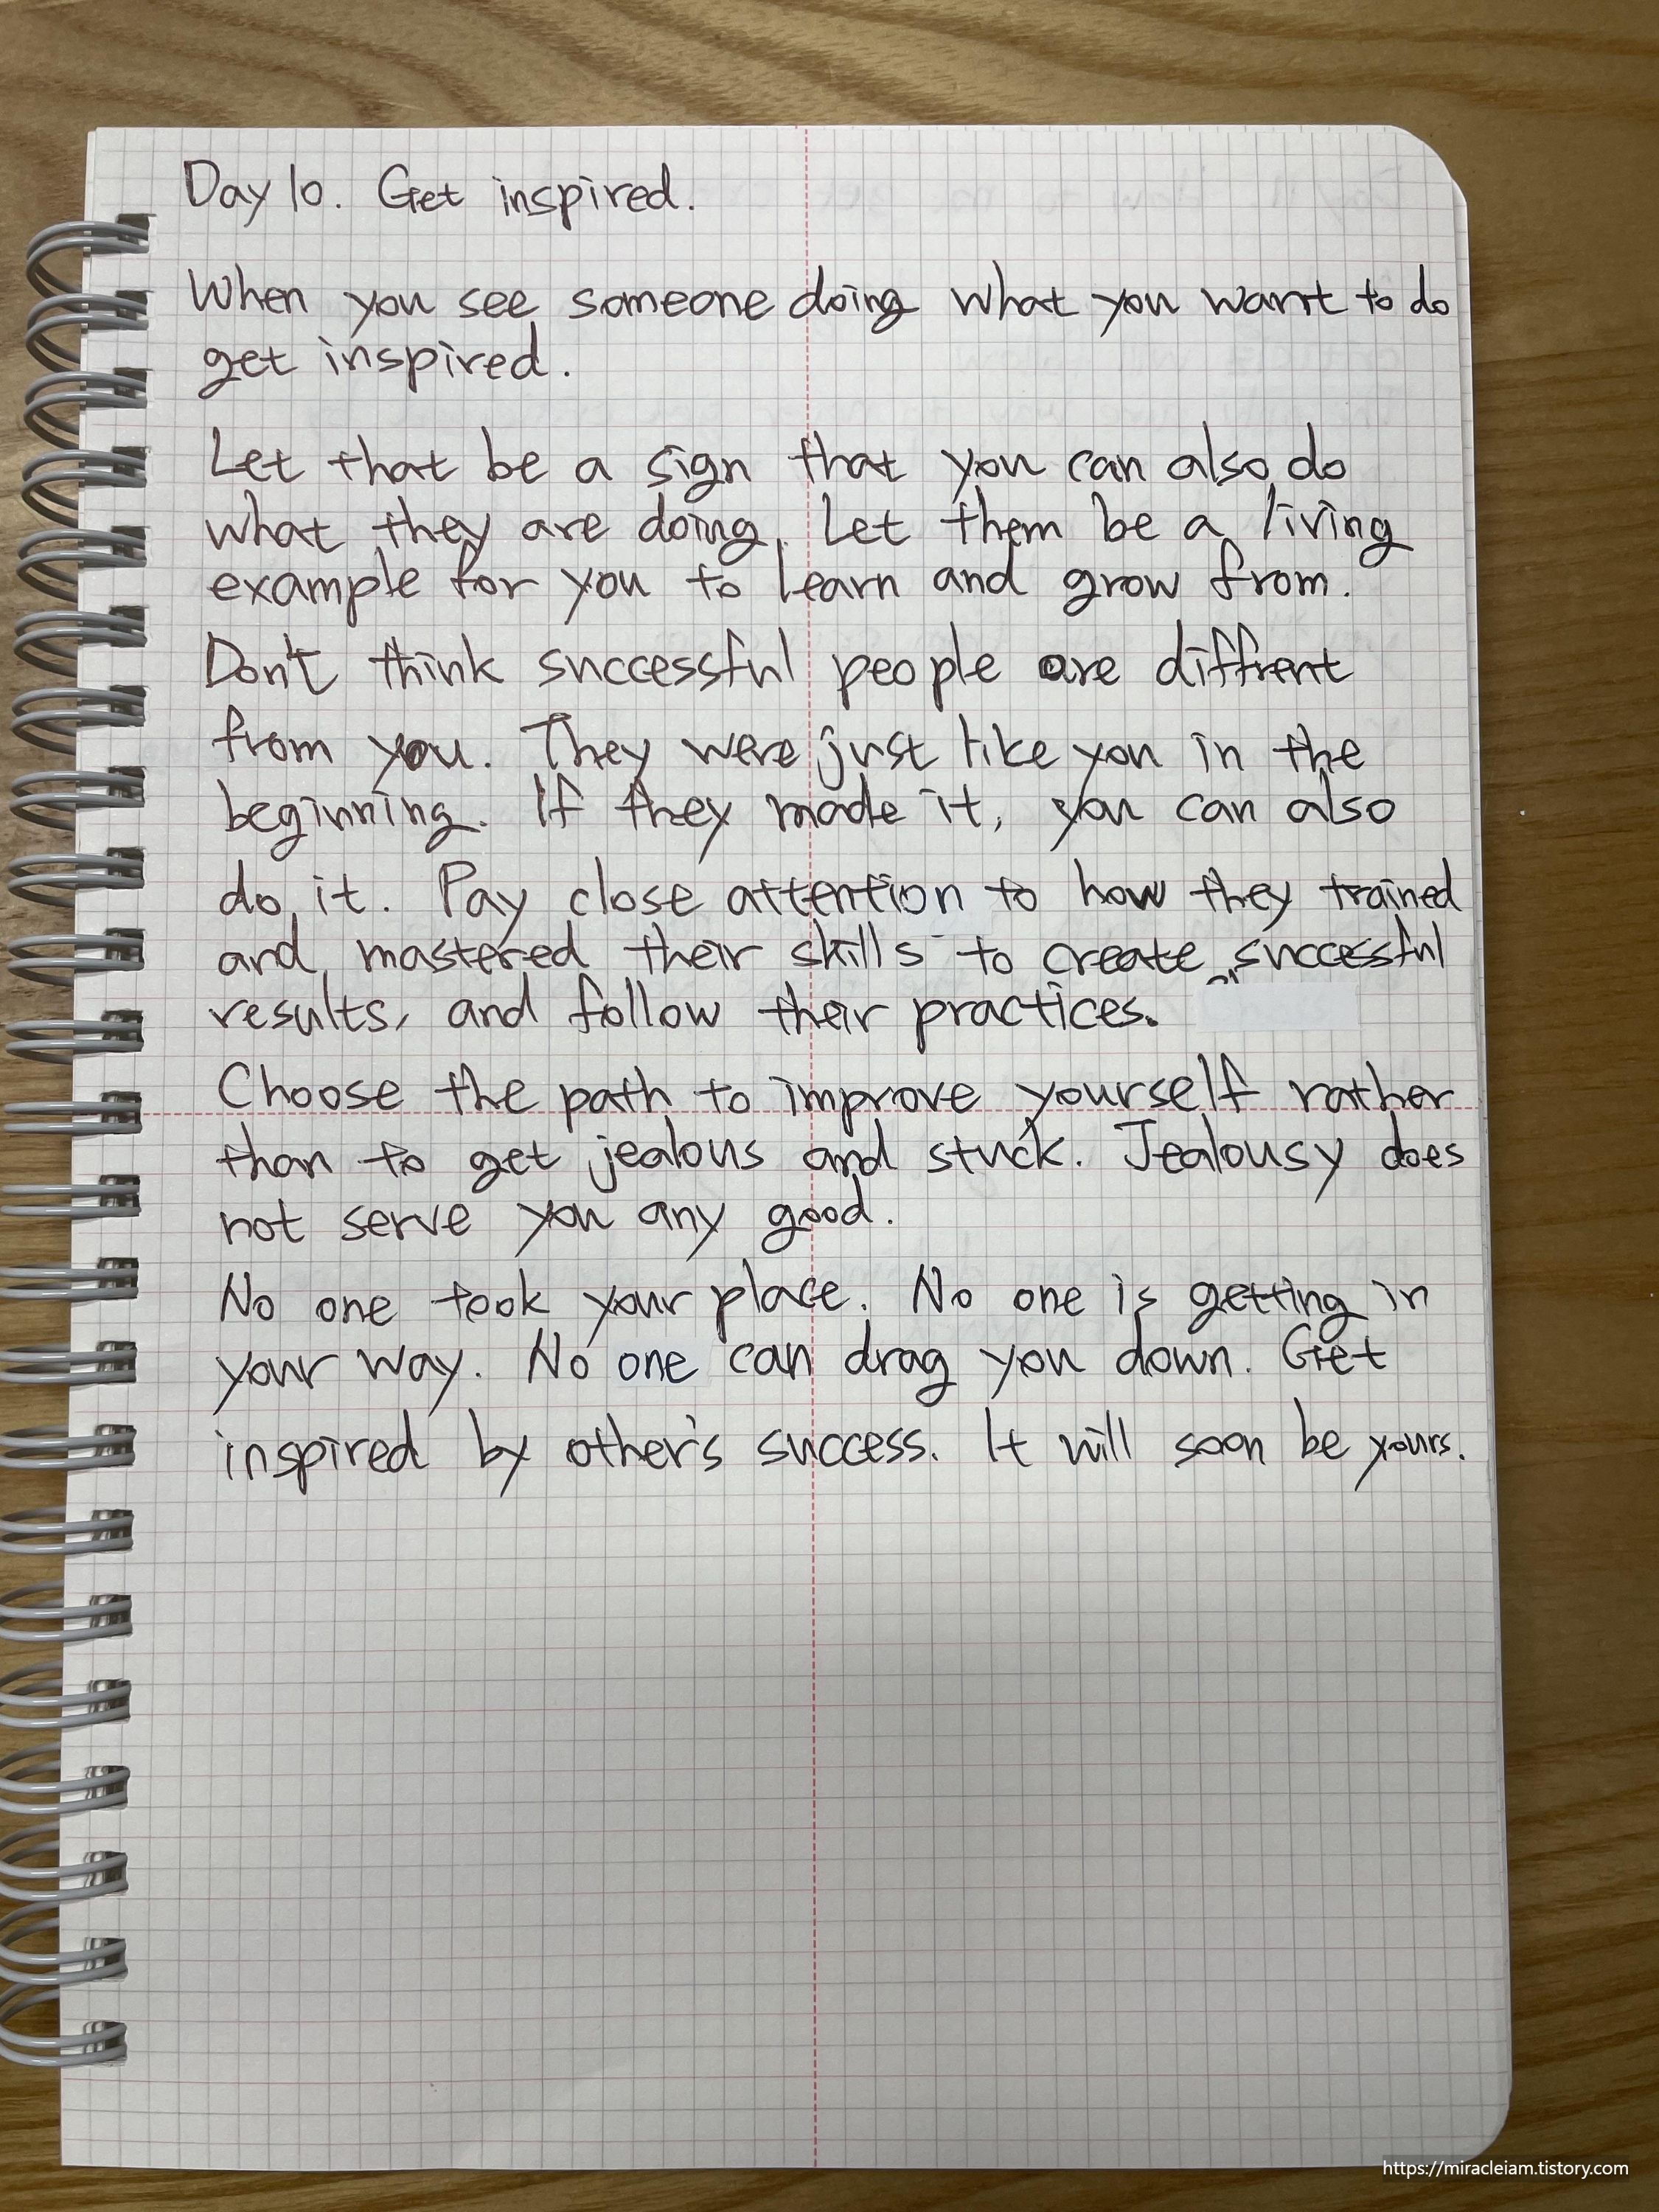 Day 10. Get inspired.
When you see someone doing what you want to do
get inspired.
Let that be a sign that you can also do
what they are doing. Let them be a living
example for you to learn and grow from.
Don't think successful people are diffrent
from you. They were just like you in the
beginning. If they made it, you can also
do it. Pay close attention to how they trained
and mastered their skills to create successful
results, and follow their practices.
Choose the path to improve yourself rather
than to get jealous and stuck. Jealousy does
not serve you any good.
No one took your place. No one is getting in
your way. No one can drag you down. Get
inspired by other's success. It will soon be yours.
https://miracleiam.tistory.com